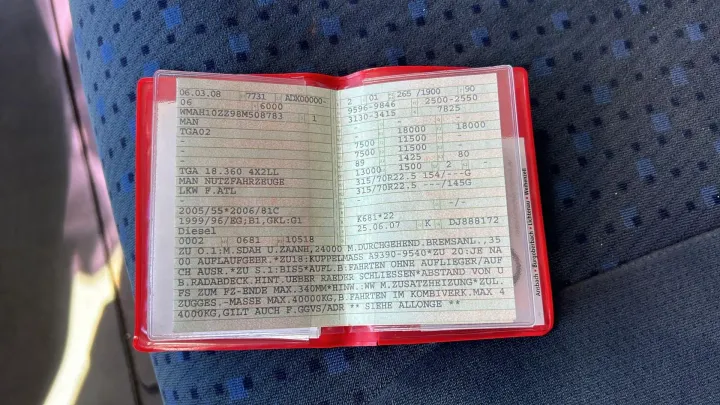 06.03.08 7731 ADK00000-
06 6000
WMAH10ZZ98M508783 1
MAN
TGA02
-
-
-
TGA 18.360 4X2LL
MAN NUTZFAHRZEUGE
LKW F.ATL
-
2005/55*2006/81C
1999/96/EG;B1,GKL:G1
Diesel
0002 0681 10518
2 01 265 /1900 90
9596-9846 2500-2550
3130-3415 7825
- -
- 18000 18000
7500 11500 -
7500 11500 -
89 1425 80
13000 1500 2 -
315/70R22.5 154/---G
315/70R22.5 ---/145G
-
- -/-
K681*22
25.06.07 K DJ888172
ZU O.1:M.SDAH U.ZAANH,24000 M.DURCHGEHEND.BREMSANL.,35
00 AUFLAUFGEBR.*ZU18:KUPPELMASS A9390-9540*ZU 20:JE NA
CH AUSR.*ZU S.1:BIS5*AUFL.B.FAHREN OHNE AUFLIEGER/AUF
B.RADABDECK.HINT.UEBER RAEDER SCHLIESSEN*ABSTAND VON U
FS ZUM FZ-ENDE MAX.340MM*HINW.:WW M.ZUSATZHEIZUNG*ZUL.
ZUGGES.-MASSE MAX.40000KG,B.FAHRTEN IM KOMBIVERK.MAX 4
4000KG,GILT AUCH F.GGVS/ADR ** SIEHE ALLONGE **